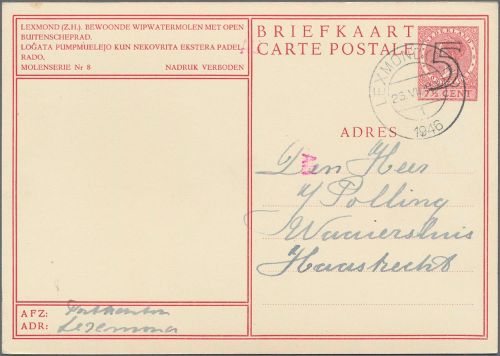 LEXMOND (Z.H.). BEWOONDE WIPWATERMOLEN MET OPEN
BUITENSCHEPRAD.
LOĜATA PUMPMUELEJO KUN NEKOVRITA EKSTERA PADEL
RADO.
MOLENSERIE Nr 8 NADRUK VERBODEN
BRIEFKAART
CARTE POSTALE
NEDERLAND
5
7½ CENT
LEXMOND
23.VII
1946
ADRES
Den Heer
Polling
Haastrecht
AFZ: Postkantoor
ADR: Lexmond